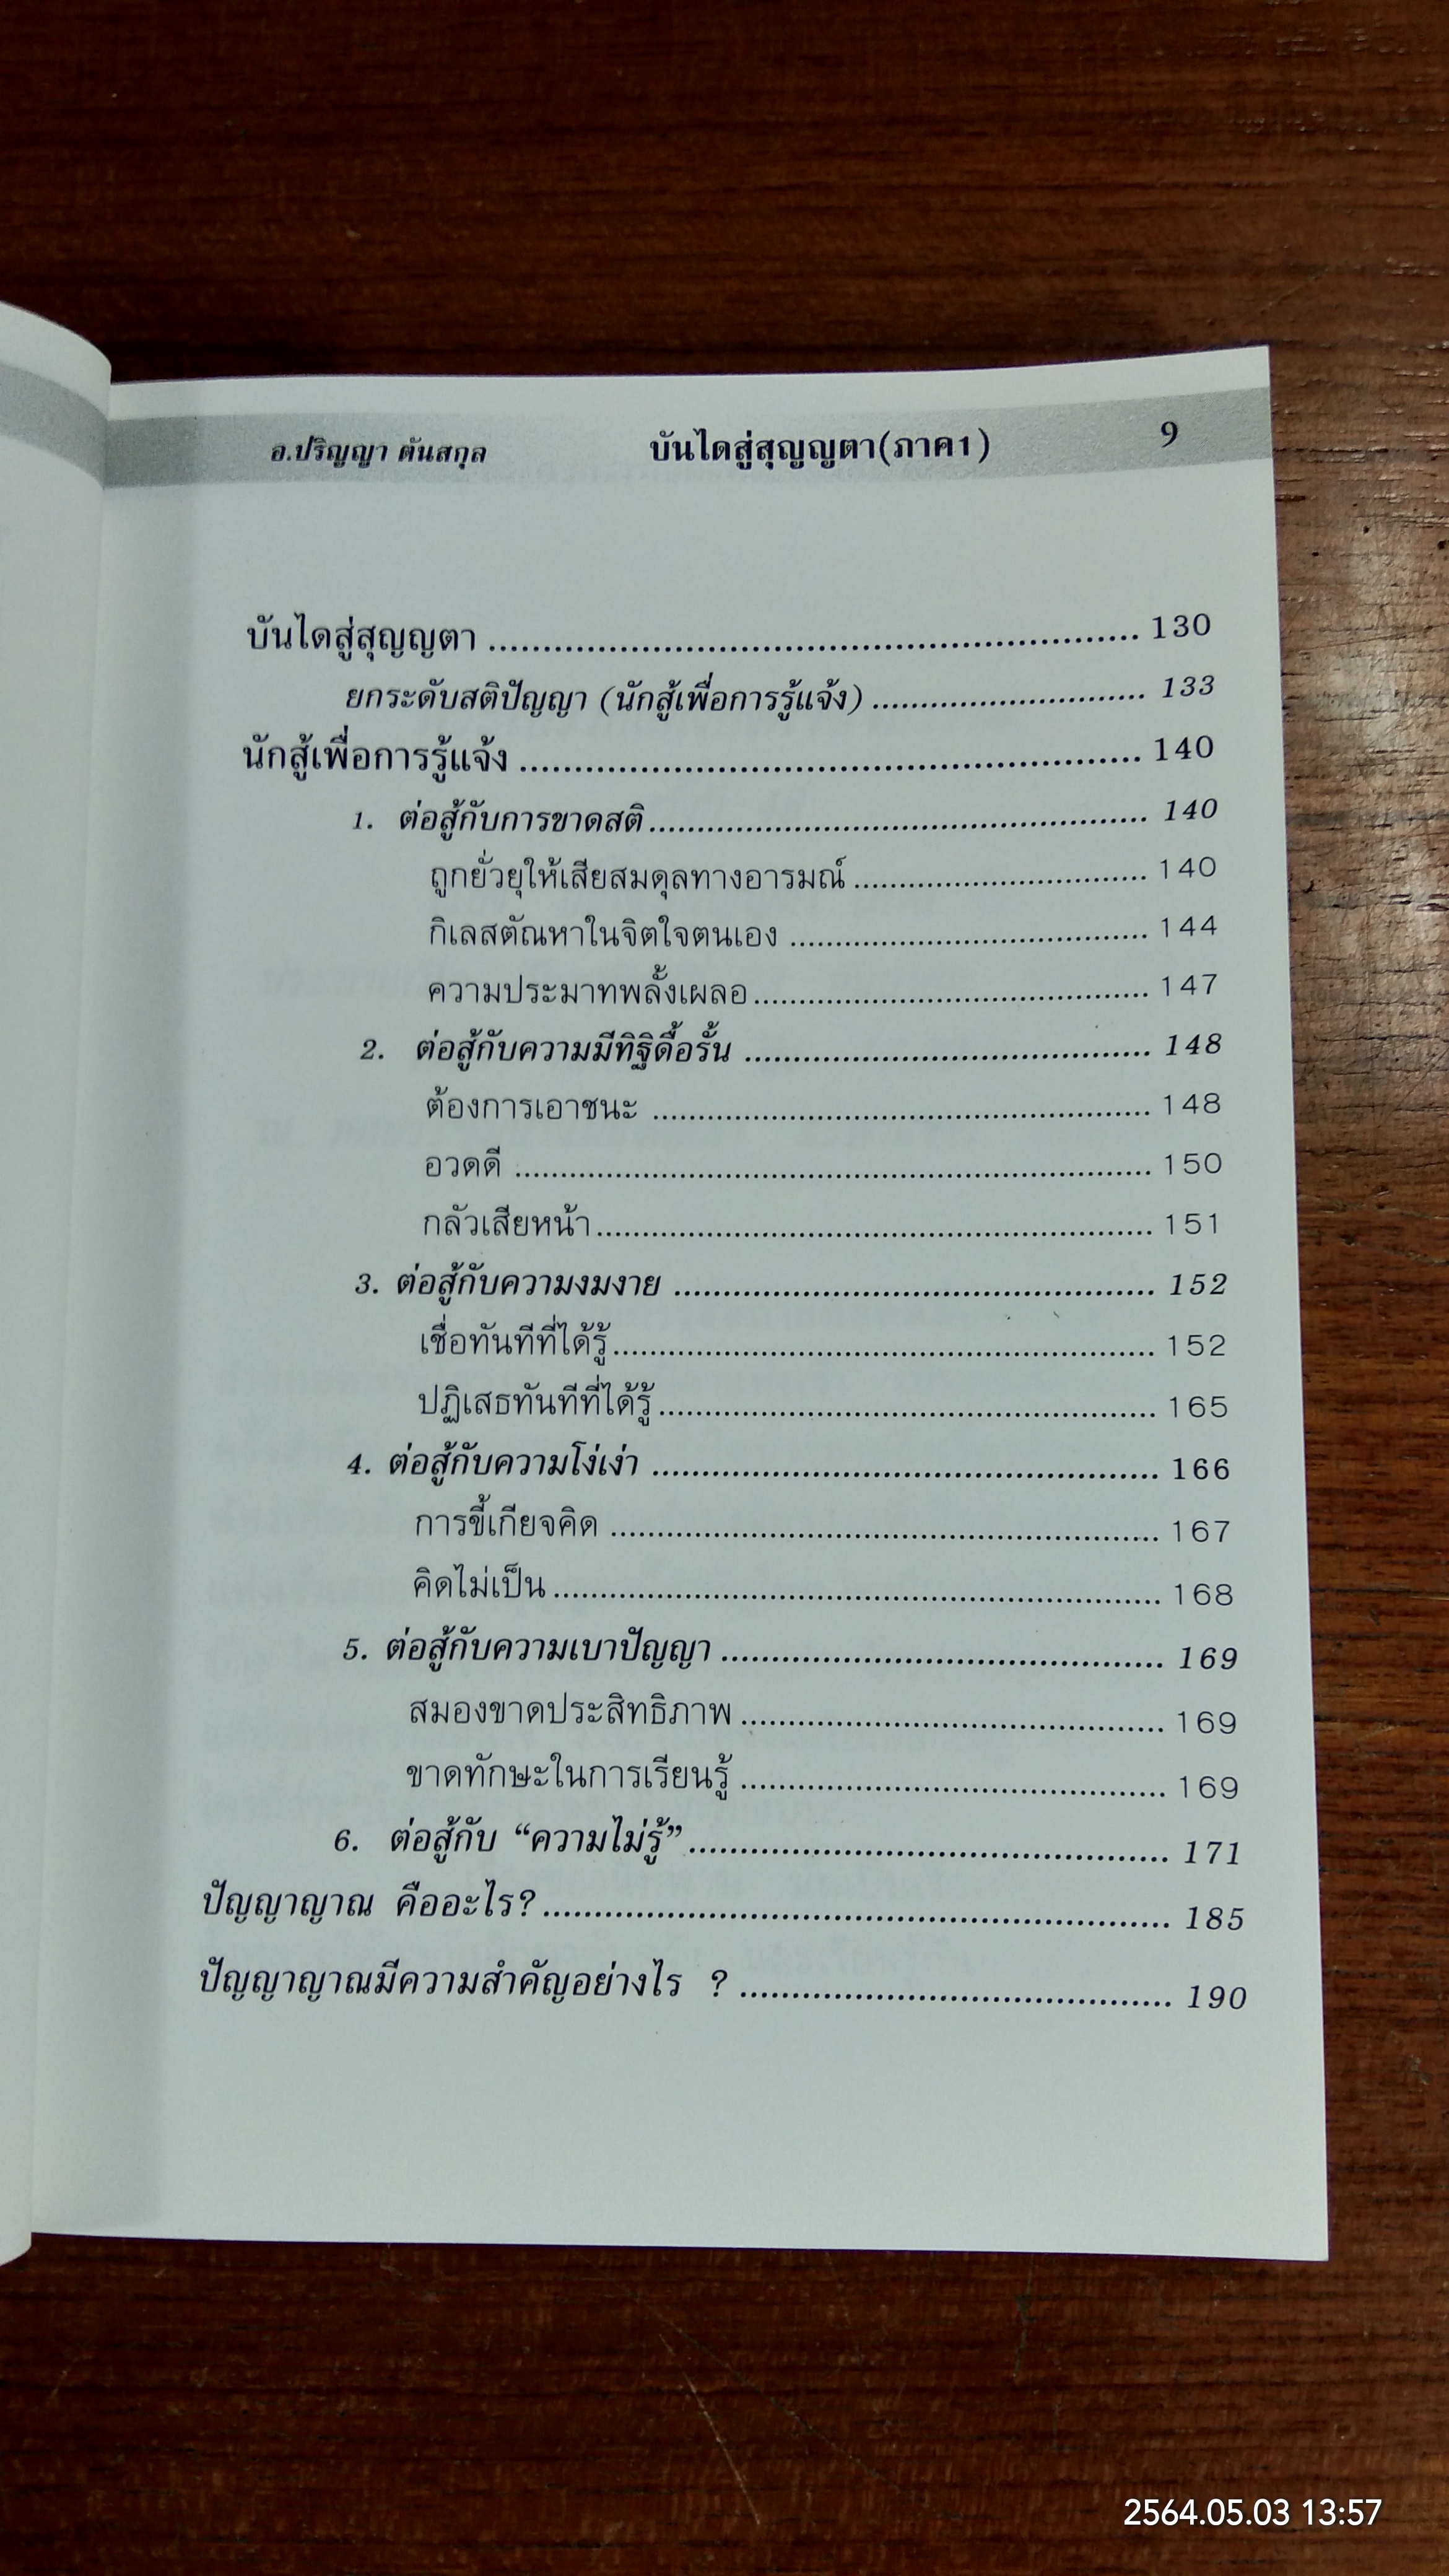 อ.ปริญญา ตันสกุล บันไดสู่สุญญตา(ภาค1) 9
บันไดสู่สุญญตา ........................................................ 130
ยกระดับสติปัญญา (นักสู้เพื่อการรู้แจ้ง) ........................... 133
นักสู้เพื่อการรู้แจ้ง ........................................................ 140
1. ต่อสู้กับการขาดสติ .................................................. 140
ถูกยั่วยุให้เสียสมดุลทางอารมณ์ ................................ 140
กิเลสตัณหาในจิตใจตนเอง ...................................... 144
ความประมาทพลั้งเผลอ .......................................... 147
2. ต่อสู้กับความมีทิฐิดื้อรั้น ......................................... 148
ต้องการเอาชนะ ..................................................... 148
อวดดี .................................................................... 150
กลัวเสียหน้า .......................................................... 151
3. ต่อสู้กับความงมงาย ................................................ 152
เชื่อทันทีที่ได้รู้ ........................................................ 152
ปฏิเสธทันทีที่ได้รู้ .................................................... 165
4. ต่อสู้กับความโง่เง่า .................................................. 166
การขี้เกียจคิด ......................................................... 167
คิดไม่เป็น ............................................................... 168
5. ต่อสู้กับความเบาปัญญา ........................................... 169
สมองขาดประสิทธิภาพ ........................................... 169
ขาดทักษะในการเรียนรู้ ........................................... 169
6. ต่อสู้กับ “ความไม่รู้” ................................................ 171
ปัญญาญาณ คืออะไร? .................................................. 185
ปัญญาญาณมีความสำคัญอย่างไร ? ................................ 190
2564.05.03 13:57